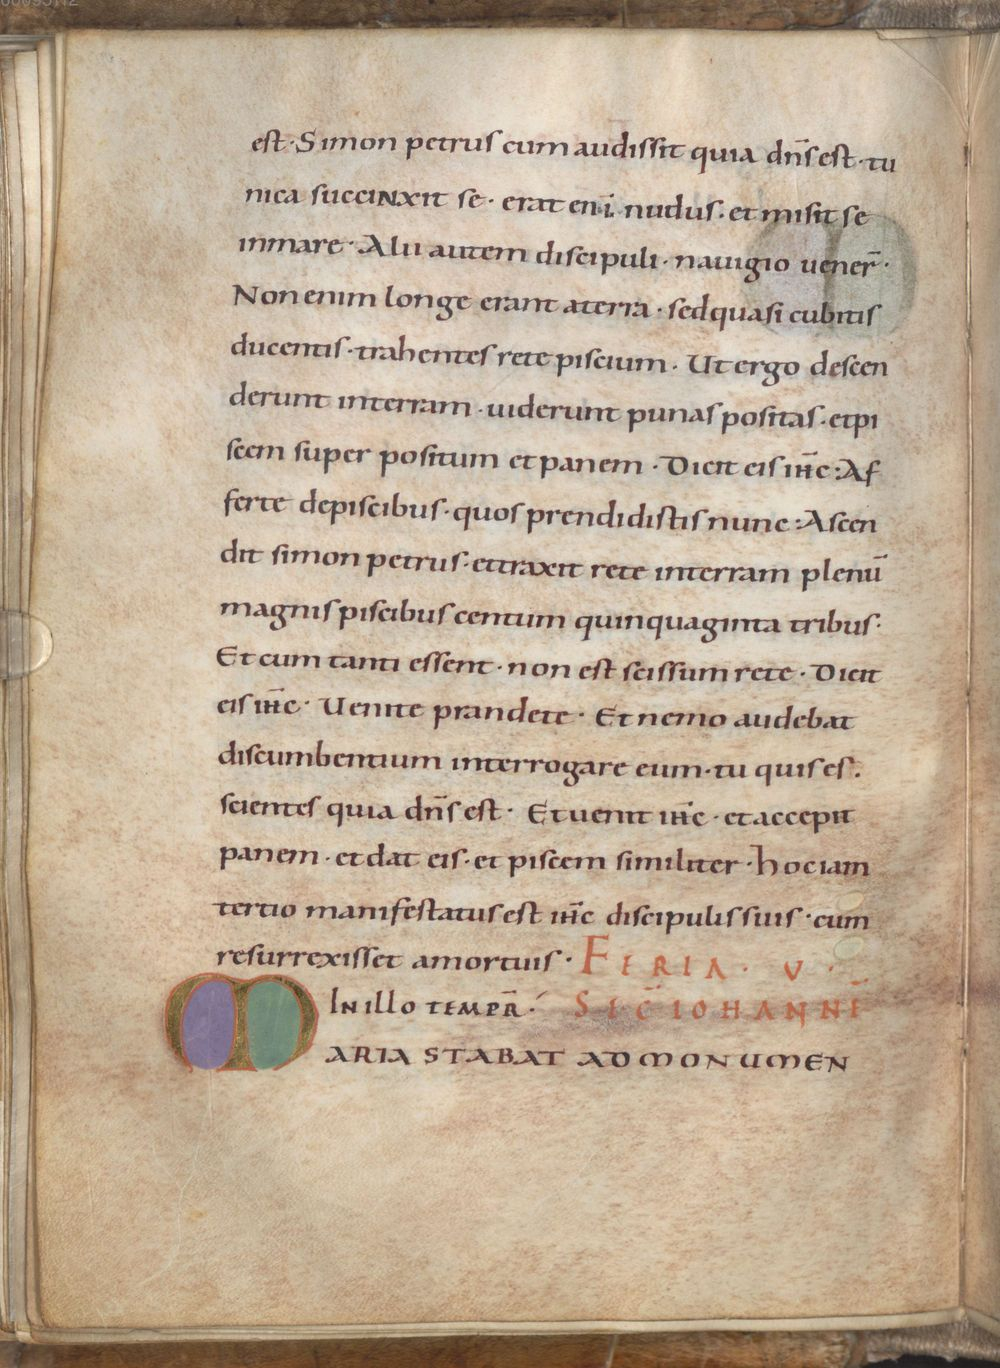 est · Simon petrus cum audissit quia dn̄s est · tu
nica succinxit se · erat eni̅ nudus · et misit se
in mare · Alii autem discipuli · nauigio uener̄ ·
Non enim longe erant a terra · sed quasi cubitis
ducentis · trahentes rete piscium · Ut ergo descen
derunt in terram · uiderunt punas positas · et pi
scem super positum et panem · Dicit eis ih̅c : Af
ferte de piscibus · quos prendidistis nunc : Ascen
dit simon petrus · et traxit rete in terram plenū
magnis piscibus centum quinquaginta tribus ·
Et cum tanti essent · non est scissum rete · Dicit
eis ih̅c · Uenite prandete · Et nemo audebat
discumbentium interrogare eum · tu quis es .
scientes quia dn̄s est · Et uenit ih̅c · et accepit
panem · et dat eis · et piscem similiter · hoc iam
tertio manifestatus est ih̅c discipulis suis · cum
resurrexisset a mortuis · FERIA · V ·
In illo tempr̄ · SEC̄ IOHANNĒ
MARIA STABAT AD MONUMEN